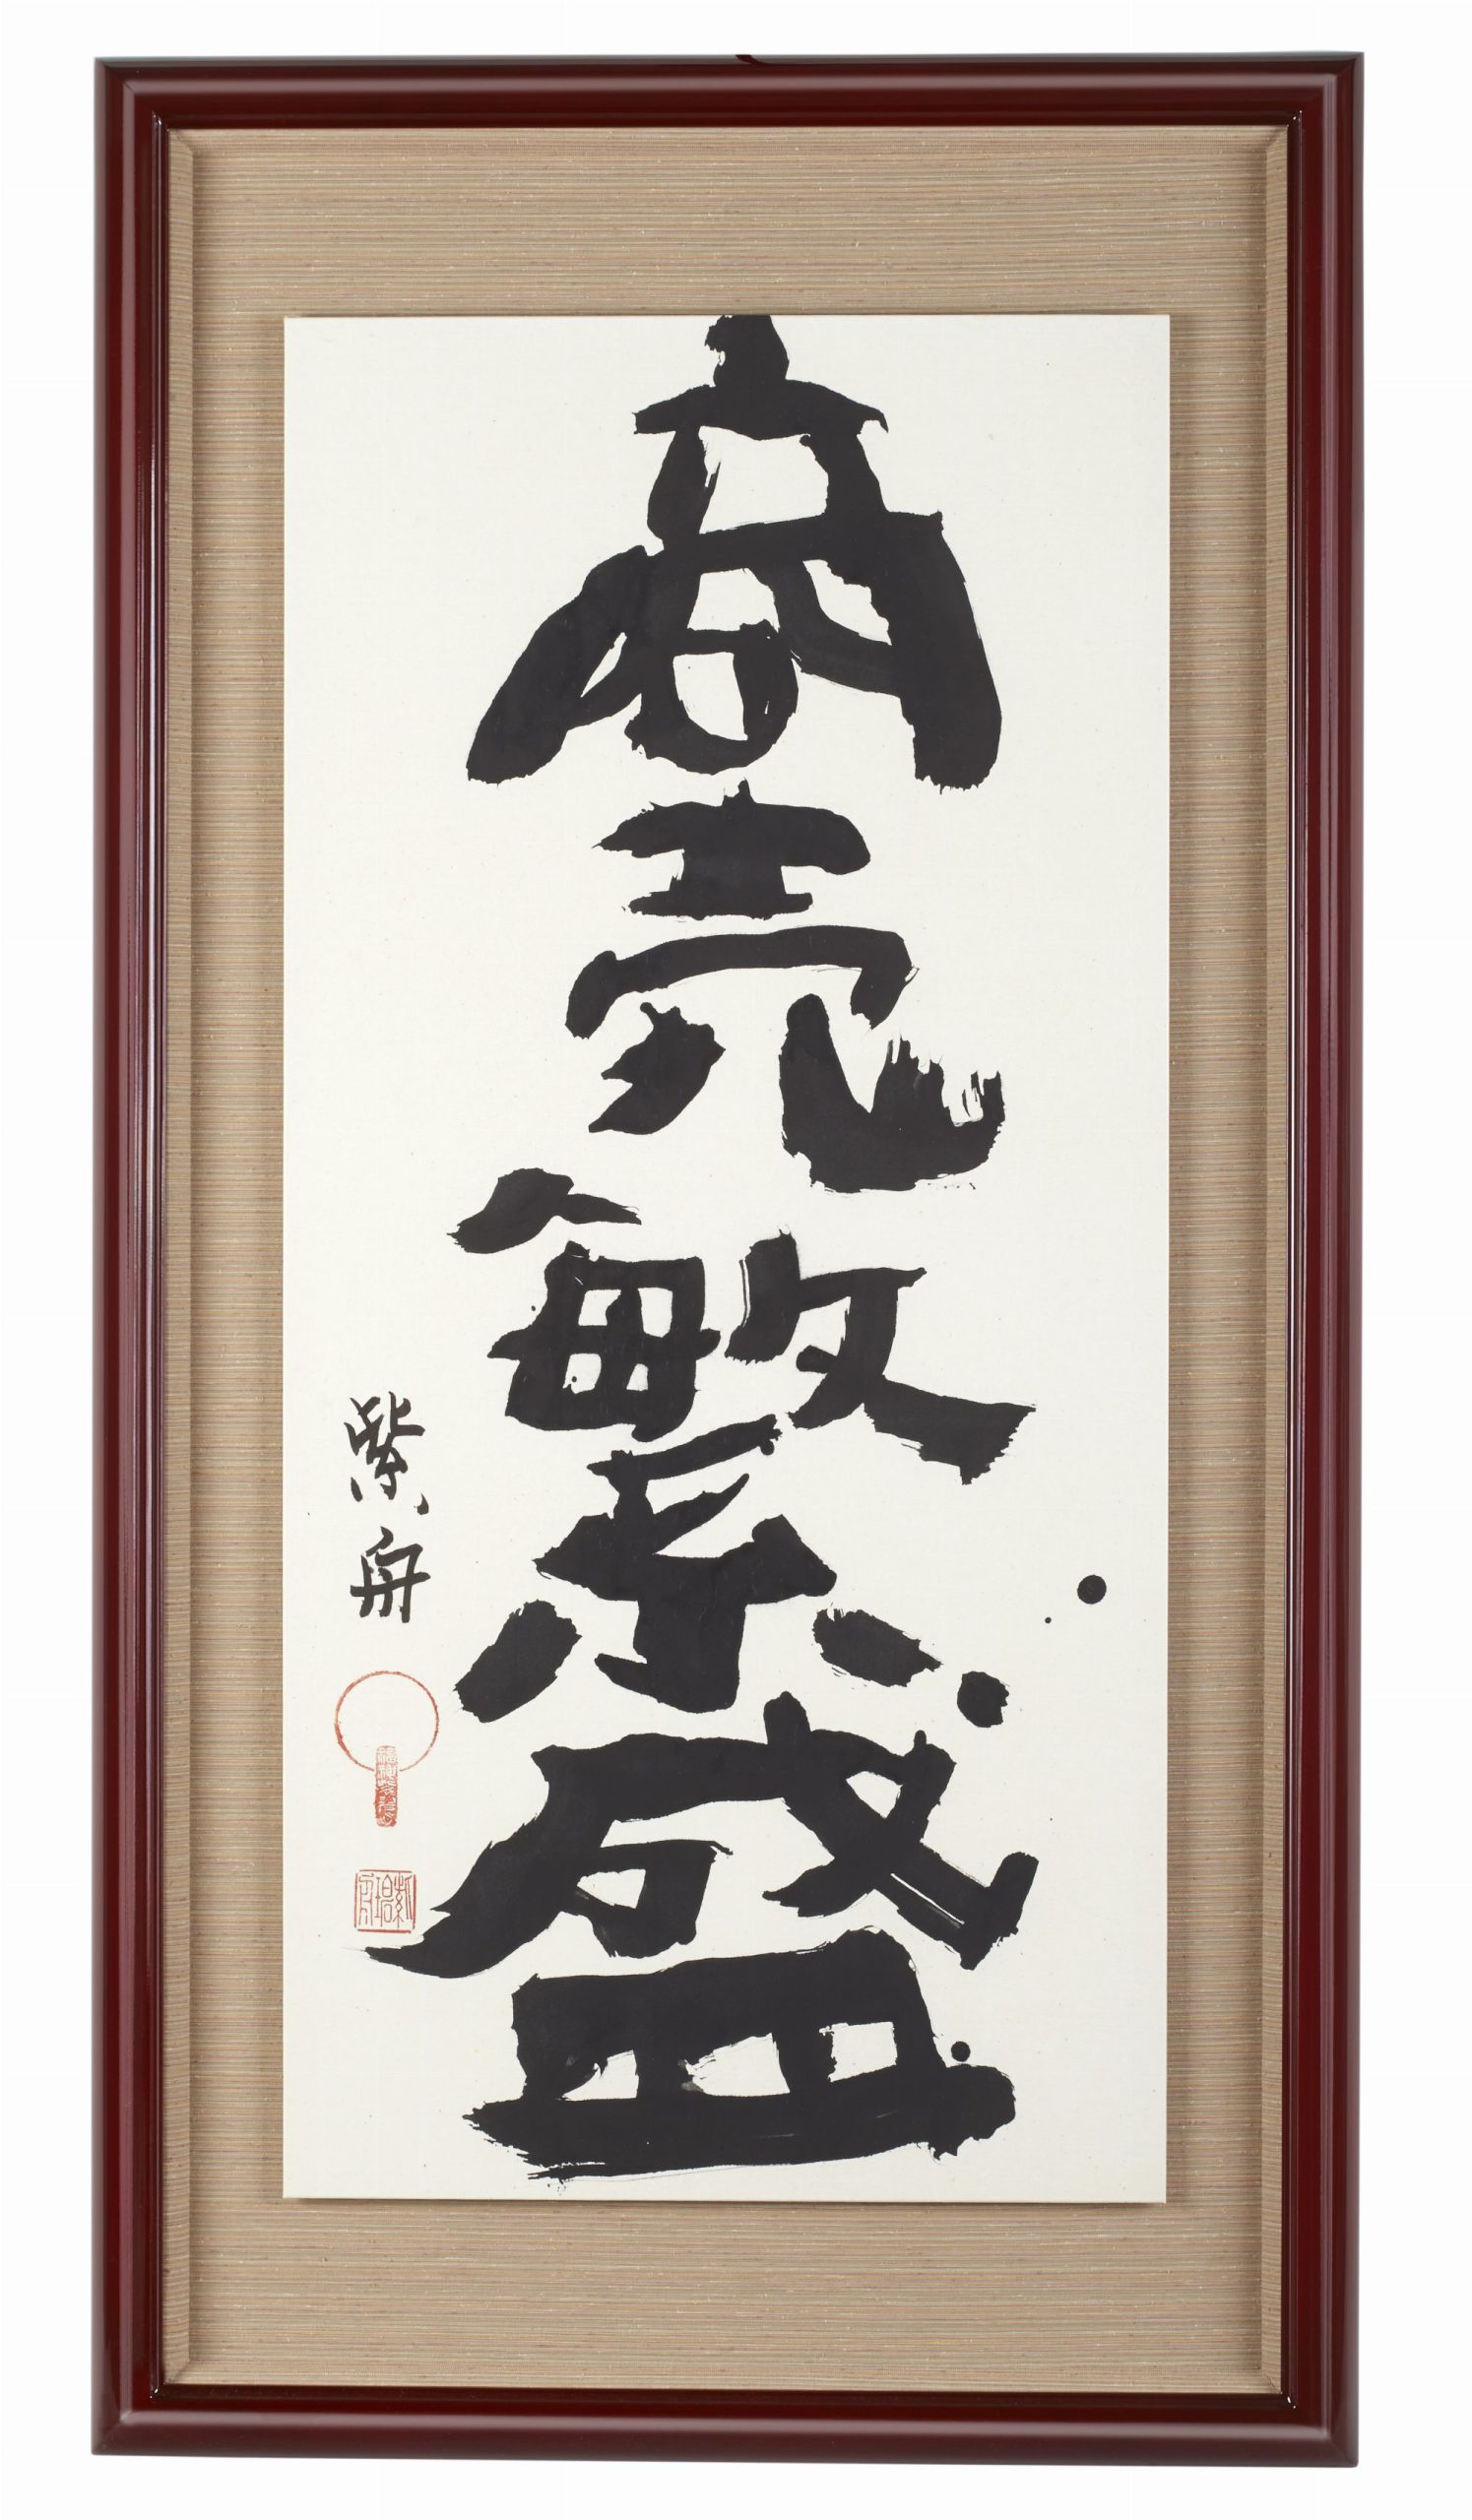 商売繁盛
紫舟